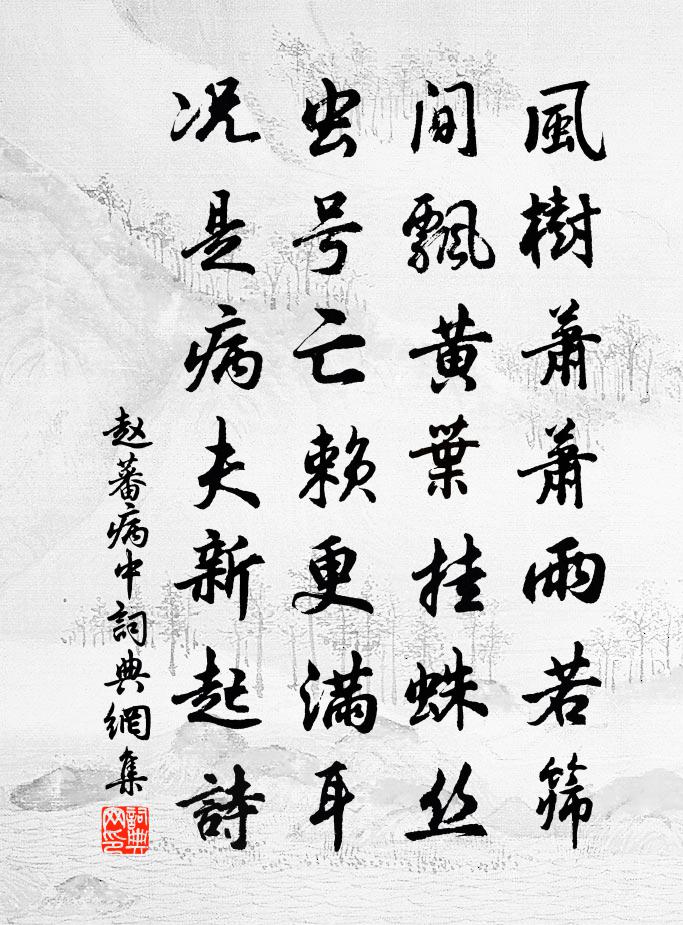 風樹蕭蕭雨若篩
间飄黄葉挂蛛丝
虫号亡赖更滿耳
况是病夫新起詩
赵蕃病中詞典網集
詞典网印